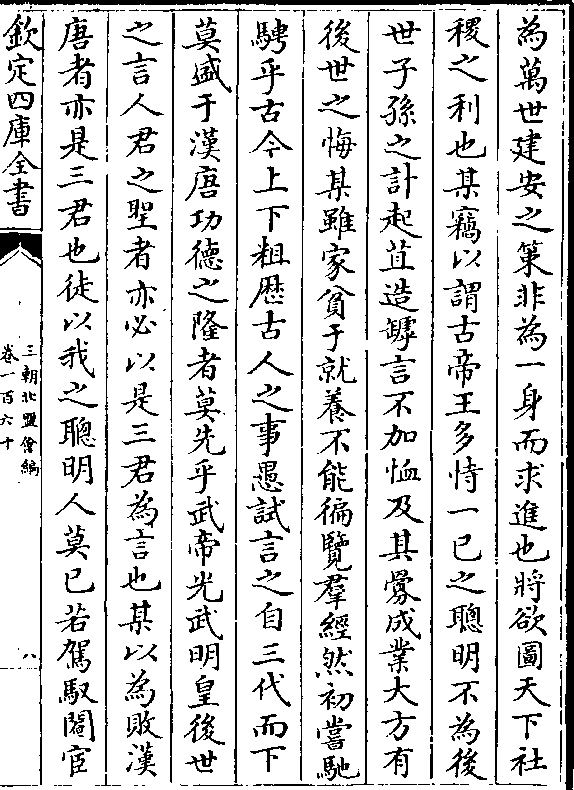 為萬世建安之䇿非為一身而求進也將欲圖天下社
稷之利也某竊以謂古帝王多恃一已之聰明不為後
世子孫之計起苴造罅言不加恤及其爨成業大方有
後世之悔某雖家貧于就養不能徧覽羣經然初嘗馳
騁乎古今上下粗厯古人之事愚試言之自三代而下
莫盛于漢唐功德之隆者莫先乎武帝光武明皇後世
之言人君之聖者亦必以是三君為言也某以為敗漢
唐者亦是三君也徒以我之聰明人莫已若駕馭閹宦
欽定四庫全書
三朝北盟㑹編
卷一百六十
八